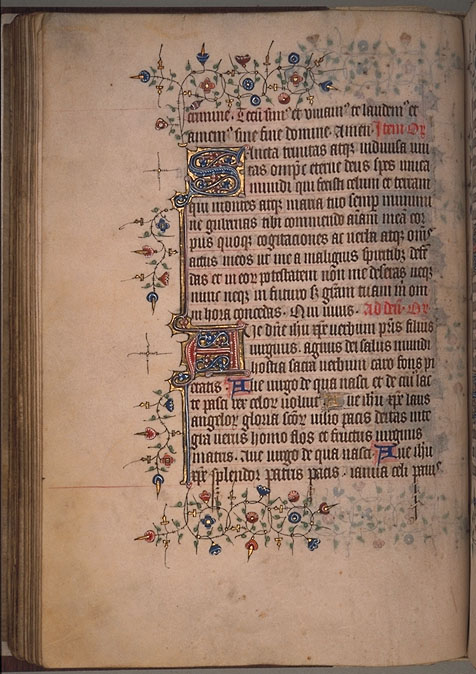 domine. Tecū simꝰ et viuamꝰ te laudemꝰ et
amemꝰ sine fine domine. Amen. Item Or̄
Sancta trinitas atqꝫ indiuisa uni
tas omp̄s eterne deus spes unica
mundi qui fecisti celum et terram
qui moues atqꝫ maria tuo semp munimi
ne gubernas tibi commendo aīam meā cor
pus quoqꝫ cogitationes ac uerba atqꝫ omēs
actus meos ut me a malignis spiritibꝫ deff
das et in eor potestatem nōn me deseras neqꝫ
nunc neqꝫ in futuro sꝫ grām tuam in om
ni hora concedas. Qui uiuis. Ad deū. Or̄
Aue dn̄e ih̄u xp̄e uerbum pr̄is filius
uirginis. agnus dei salus mundi
hostia sacra uerbum caro fons pi
etatis. Aue uirgo de qua nasci et de cui lac
te pasci rex celor uoluit. Aue ih̄u xp̄e laus
angelor gloria scōr uisio pacis deitas inte
gra uerus homo flos et fructus uirginis
matris. Aue uirgo de qua nasci. Aue ih̄u
xp̄e splendor patris pacis. ianua celi panis